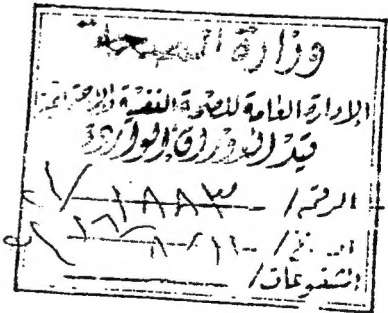 وزارة الصحة
الإدارة العامة للصحة النفسية والاجتماعية
قيد الأوراق الواردة
الرقم / ١٨٨٣ /
التاريخ /
المشفوعات /